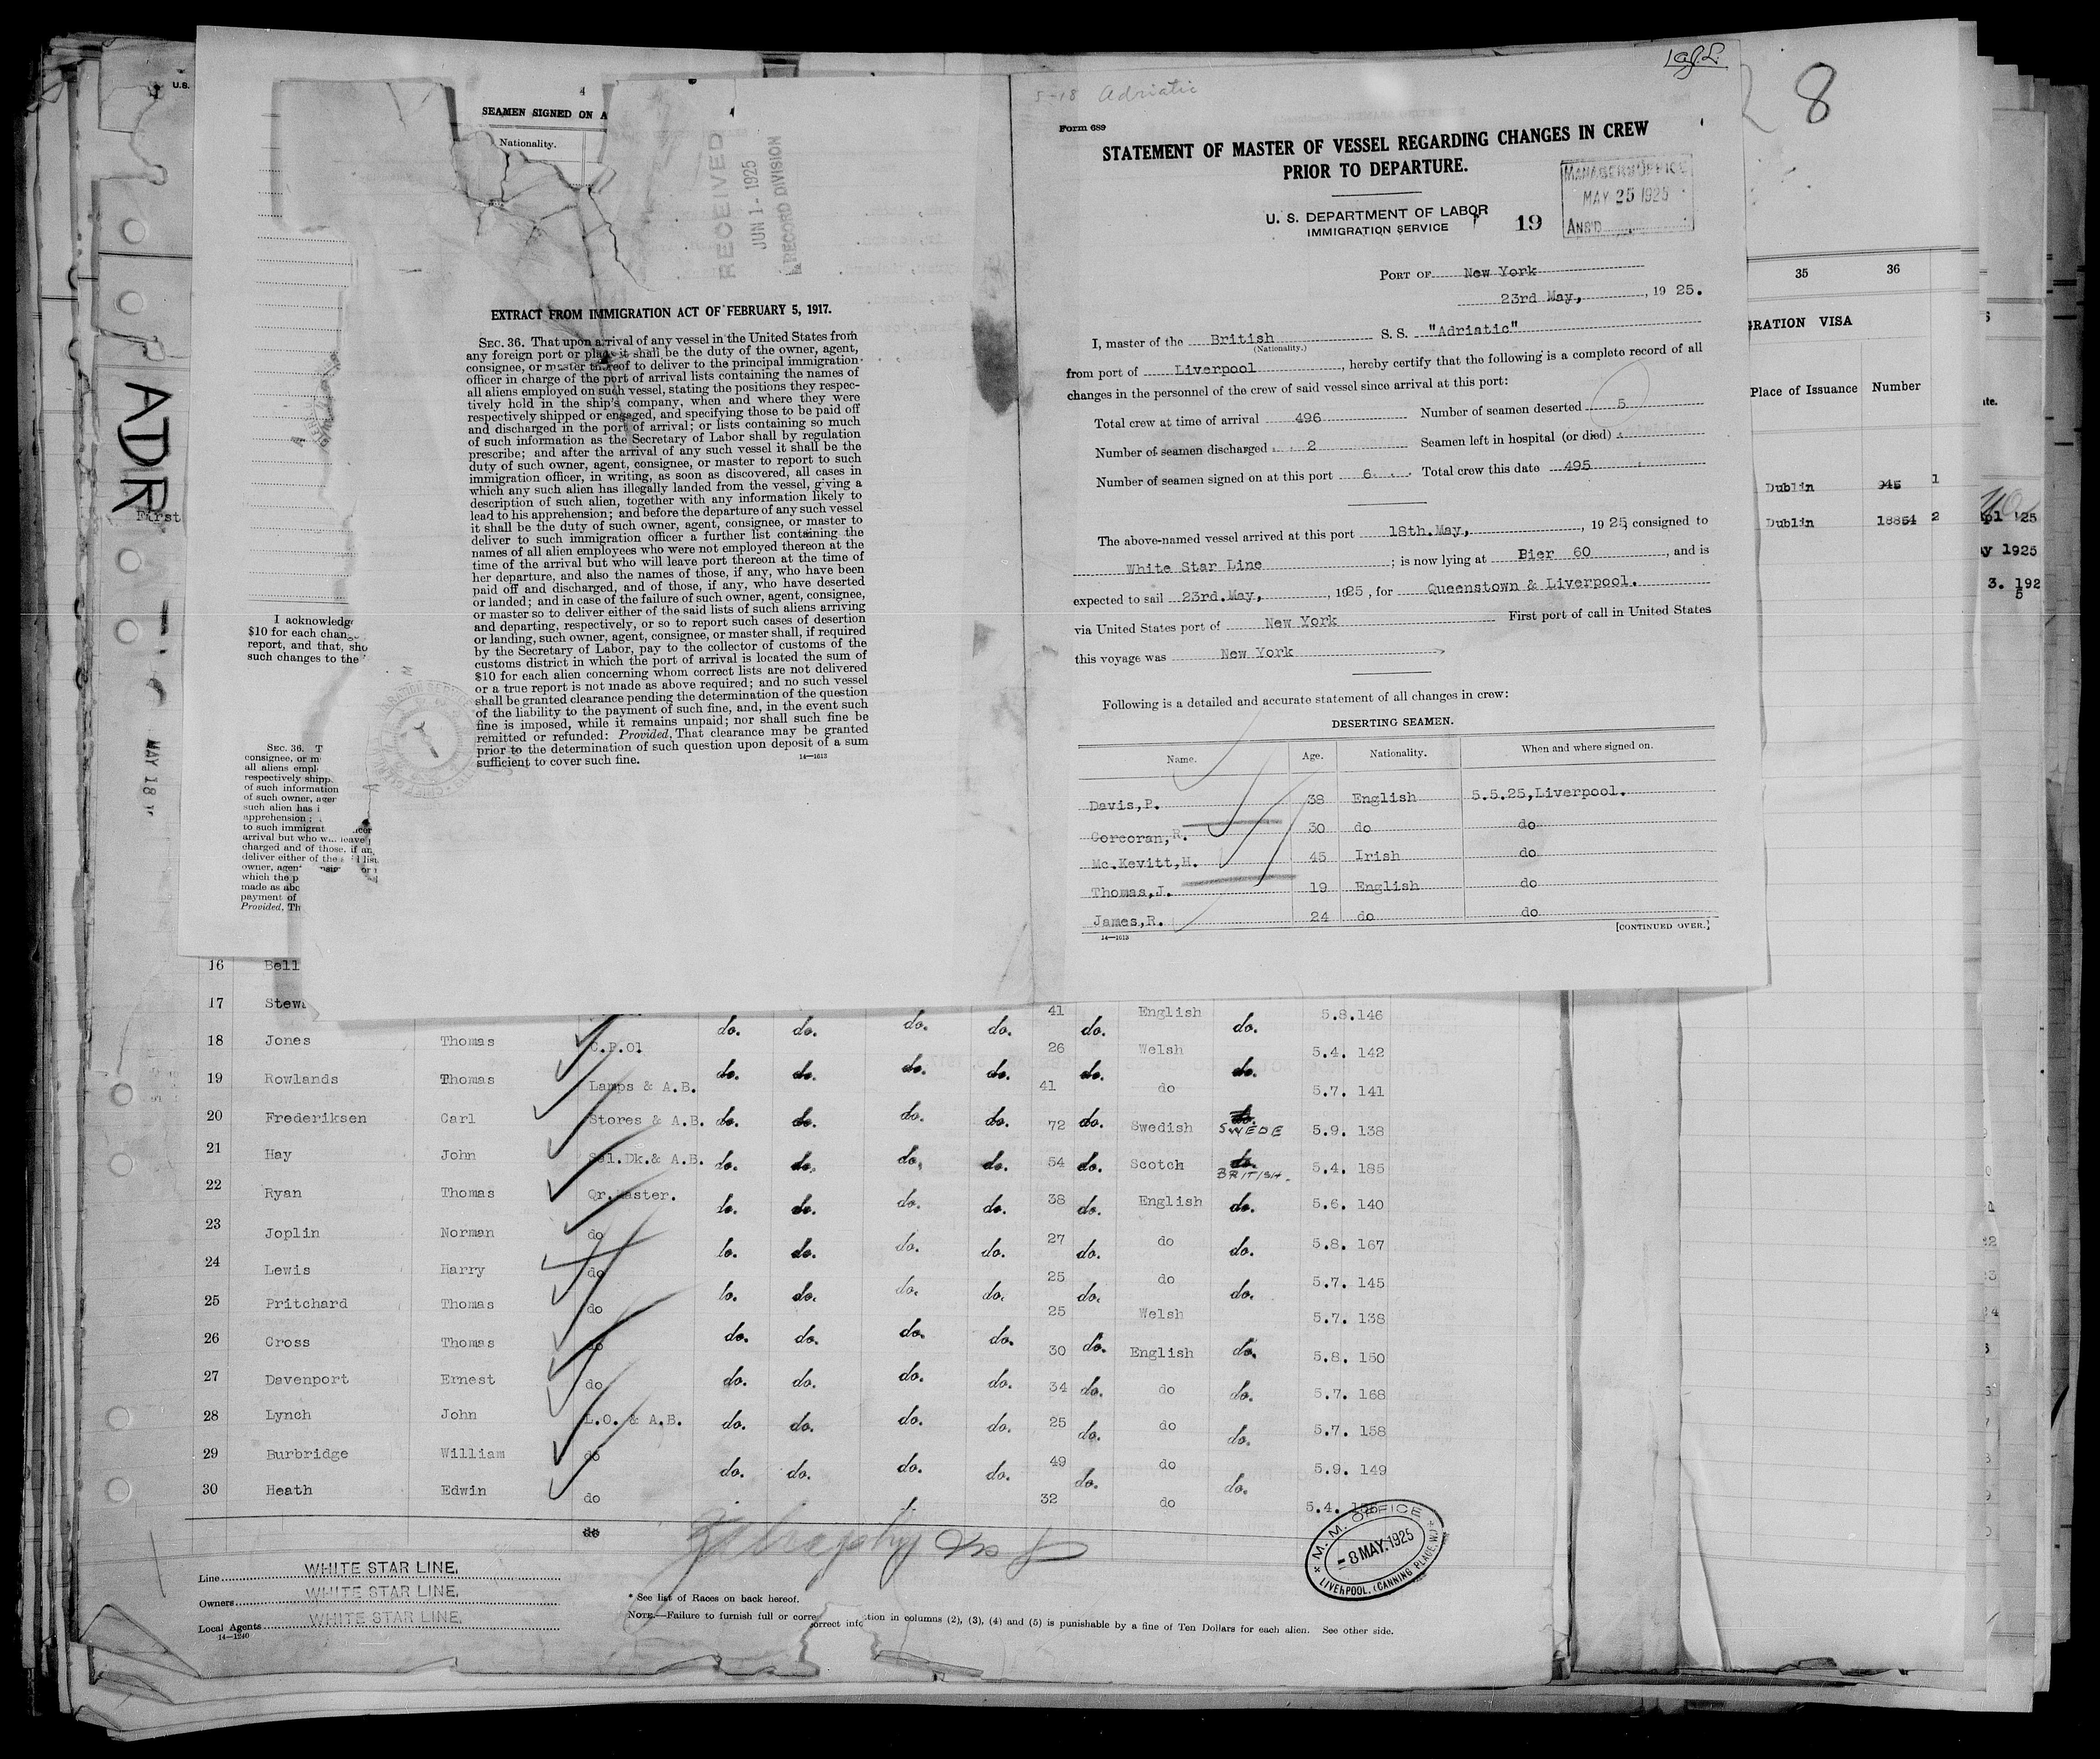 4
SEAMEN SIGNED ON A
Nationality.
RECEIVED
JUN 1 - 1925
RECORD DIVISION
EXTRACT FROM IMMIGRATION ACT OF FEBRUARY 5, 1917.
SEC. 36. That upon arrival of any vessel in the United States from
any foreign port or place it shall be the duty of the owner, agent,
consignee, or master thereof to deliver to the principal immigration
officer in charge of the port of arrival lists containing the names of
all aliens employed on such vessel, stating the positions they respec-
tively hold in the ship's company, when and where they were
respectively shipped or engaged, and specifying those to be paid off
and discharged in the port of arrival; or lists containing so much
of such information as the Secretary of Labor shall by regulation
prescribe; and after the arrival of any such vessel it shall be the
duty of such owner, agent, consignee, or master to report to such
immigration officer, in writing, as soon as discovered, all cases in
which any such alien has illegally landed from the vessel, giving a
description of such alien, together with any information likely to
lead to his apprehension; and before the departure of any such vessel
it shall be the duty of such owner, agent, consignee, or master to
deliver to such immigration officer a further list containing the
names of all alien employees who were not employed thereon at the
time of the arrival but who will leave port thereon at the time of
her departure, and also the names of those, if any, who have been
paid off and discharged, and of those, if any, who have deserted
or landed; and in case of the failure of such owner, agent, consignee,
or master so to deliver either of the said lists of such aliens arriving
and departing, respectively, or so to report such cases of desertion
or landing, such owner, agent, consignee, or master shall, if required
by the Secretary of Labor, pay to the collector of customs of the
customs district in which the port of arrival is located the sum of
$10 for each alien concerning whom correct lists are not delivered
or a true report is not made as above required; and no such vessel
shall be granted clearance pending the determination of the question
of the liability to the payment of such fine, and, in the event such
fine is imposed, while it remains unpaid; nor shall such fine be
remitted or refunded: Provided, That clearance may be granted
prior to the determination of such question upon deposit of a sum
sufficient to cover such fine.
14—1613
I acknowledg
$10 for each chan
report, and that, sho
such changes to the
SEC. 36. T
consignee, or m
all aliens empl
respectively shipp
of such information
of such owner, ager
such alien has i
apprehension;
to such immigrat
arrival but who w leave
charged and of those, if an
deliver either of the
owner, agen
which the p
made as abo
payment of
Provided, Th
U.S.
ADR
First
MAY 18
5-18 Adriatic
8
Form 689
STATEMENT OF MASTER OF VESSEL REGARDING CHANGES IN CREW
PRIOR TO DEPARTURE.
U. S. DEPARTMENT OF LABOR
IMMIGRATION SERVICE
19
MANAGERS OFFICE
MAY 25 1925
ANS'D
PORT OF New York
23rd May, , 19 25.
I, master of the British S. S. "Adriatic"
(Nationality.)
from port of Liverpool , hereby certify that the following is a complete record of all
changes in the personnel of the crew of said vessel since arrival at this port:
Total crew at time of arrival 496 Number of seamen deserted 5
Number of seamen discharged 2 Seamen left in hospital (or died)
Number of seamen signed on at this port 6 Total crew this date 495
The above-named vessel arrived at this port 18th.May, , 19 25, consigned to
White Star Line ; is now lying at Pier 60 , and is
expected to sail 23rd.May, , 1925 , for Queenstown & Liverpool.
via United States port of New York First port of call in United States
this voyage was New York
Following is a detailed and accurate statement of all changes in crew:
DESERTING SEAMEN.
Name. Age. Nationality. When and where signed on.
Davis,P. 38 English 5.5.25,Liverpool.
Corcoran,R. 30 do do
Mc.Kevitt,H. 45 Irish do
Thomas,J. 19 English do
James,R. 24 do do
14—1613
[CONTINUED OVER.]
35 36
GRATION VISA
Place of Issuance Number
Dublin 945 1
Dublin 18854 2
'25
y 1925
3. 192
5
16 Bell
17 Stew 41 English 5.8.146
18 Jones Thomas C.P.Ol do. do. do. do. 26 do. Welsh do. 5.4. 142
19 Rowlands Thomas Lamps & A.B. do. do. do. do. 41 do. do do. 5.7. 141
20 Frederiksen Carl Stores & A.B. do. do. do. do. 72 do. Swedish SWEDE 5.9. 138
21 Hay John Sal.Dk.& A.B. do. do. do. do. 54 do. Scotch BRITISH. 5.4. 185
22 Ryan Thomas Qr.Master. do. do. do. do. 38 do. English do. 5.6. 140
23 Joplin Norman do do. do. do. do. 27 do. do do. 5.8. 167
24 Lewis Harry do do. do. do. do. 25 do. do do. 5.7. 145
25 Pritchard Thomas do 25 Welsh 5.7. 138
26 Cross Thomas do do. do. do. do. 30 do. English do. 5.8. 150
27 Davenport Ernest do do. do. do. do. 34 do. do do. 5.7. 168
28 Lynch John L.O. & A.B. do. do. do. do. 25 do. do do. 5.7. 158
29 Burbridge William do do. do. do. do. 49 do. do do. 5.9. 149
30 Heath Edwin do 32 do 5.4.
do
M. M. OFFICE
- 8 MAY.1925
LIVERPOOL. (CANNING PLACE, W.)
Line WHITE STAR LINE.
Owners WHITE STAR LINE.
Local Agents WHITE STAR LINE.
14—1240
* See list of Races on back hereof.
NOTE.—Failure to furnish full or correct information in columns (2), (3), (4) and (5) is punishable by a fine of Ten Dollars for each alien. See other side.